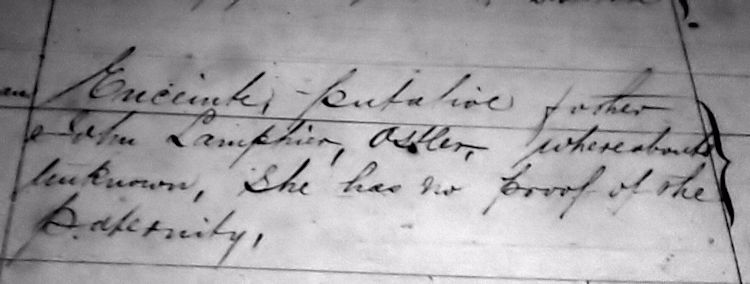 Enceinte, putative father
John Lamphier, Ostler, whereabouts
unknown, She has no proof of the
paternity,